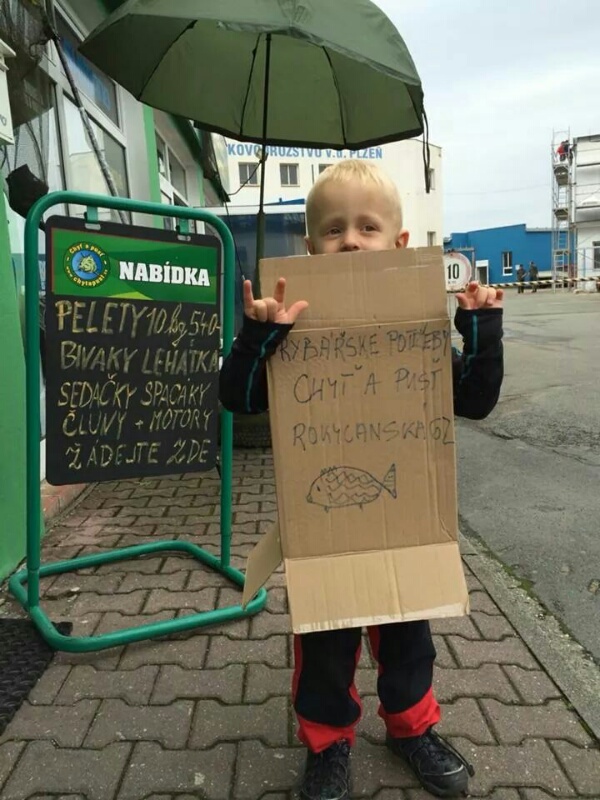 KOVODRUŽSTVO V.D. PLZEŇ
10
Chyť a pusť
chytapust.cz
NABÍDKA
PELETY 10 kg 540,-
BIVAKY LEHÁTKA
SEDAČKY SPACÁKY
ČLUNY + MOTORY
ŽÁDEJTE ZDE
RYBÁŘSKÉ POTŘEBY
CHYŤ A PUSŤ
ROKYCANSKÁ 62